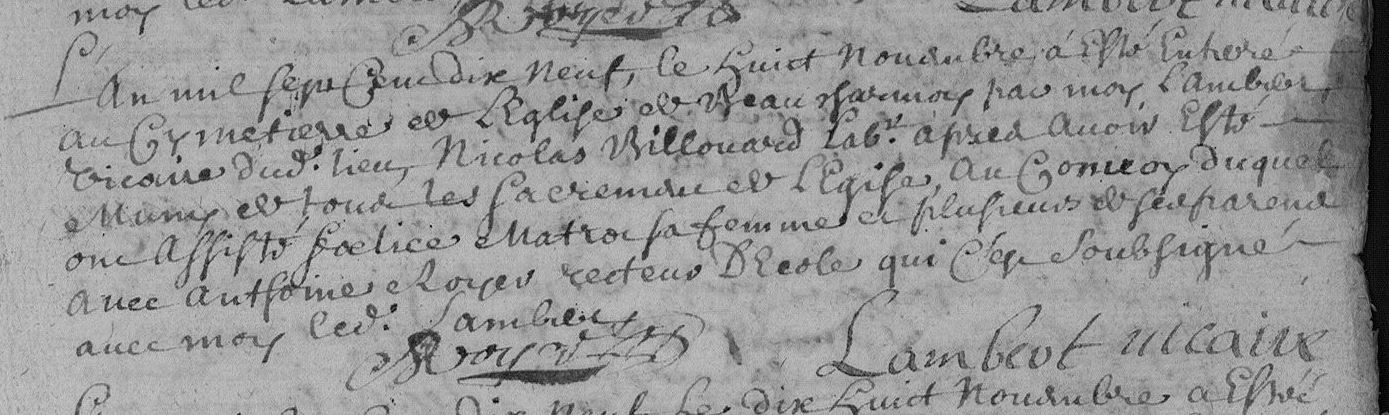 moy led. Lambert
Royer Lambert vicaire
L'An mil sept Cent dix Neuf, le huict Novembre à Esté Enterré
Au Cymetierre de L'Eglise de Beaucharmoy par moy Lambert,
Vicaire dud. lieu, Nicolas Billouard Lab.r apres Avoir Esté
Muny de tous les Sacremens de L'Eglise, Au Convoy Duquel
ont Assisté foelice Matrot sa femme et plusieurs de ses parens
Avec Anthoine Royer recteur D'Ecole qui s'est Soubsigné
avec moy led. Lambert
Royer Lambert vicaire
dix Neuf Le dix Huict Novembre a Esté